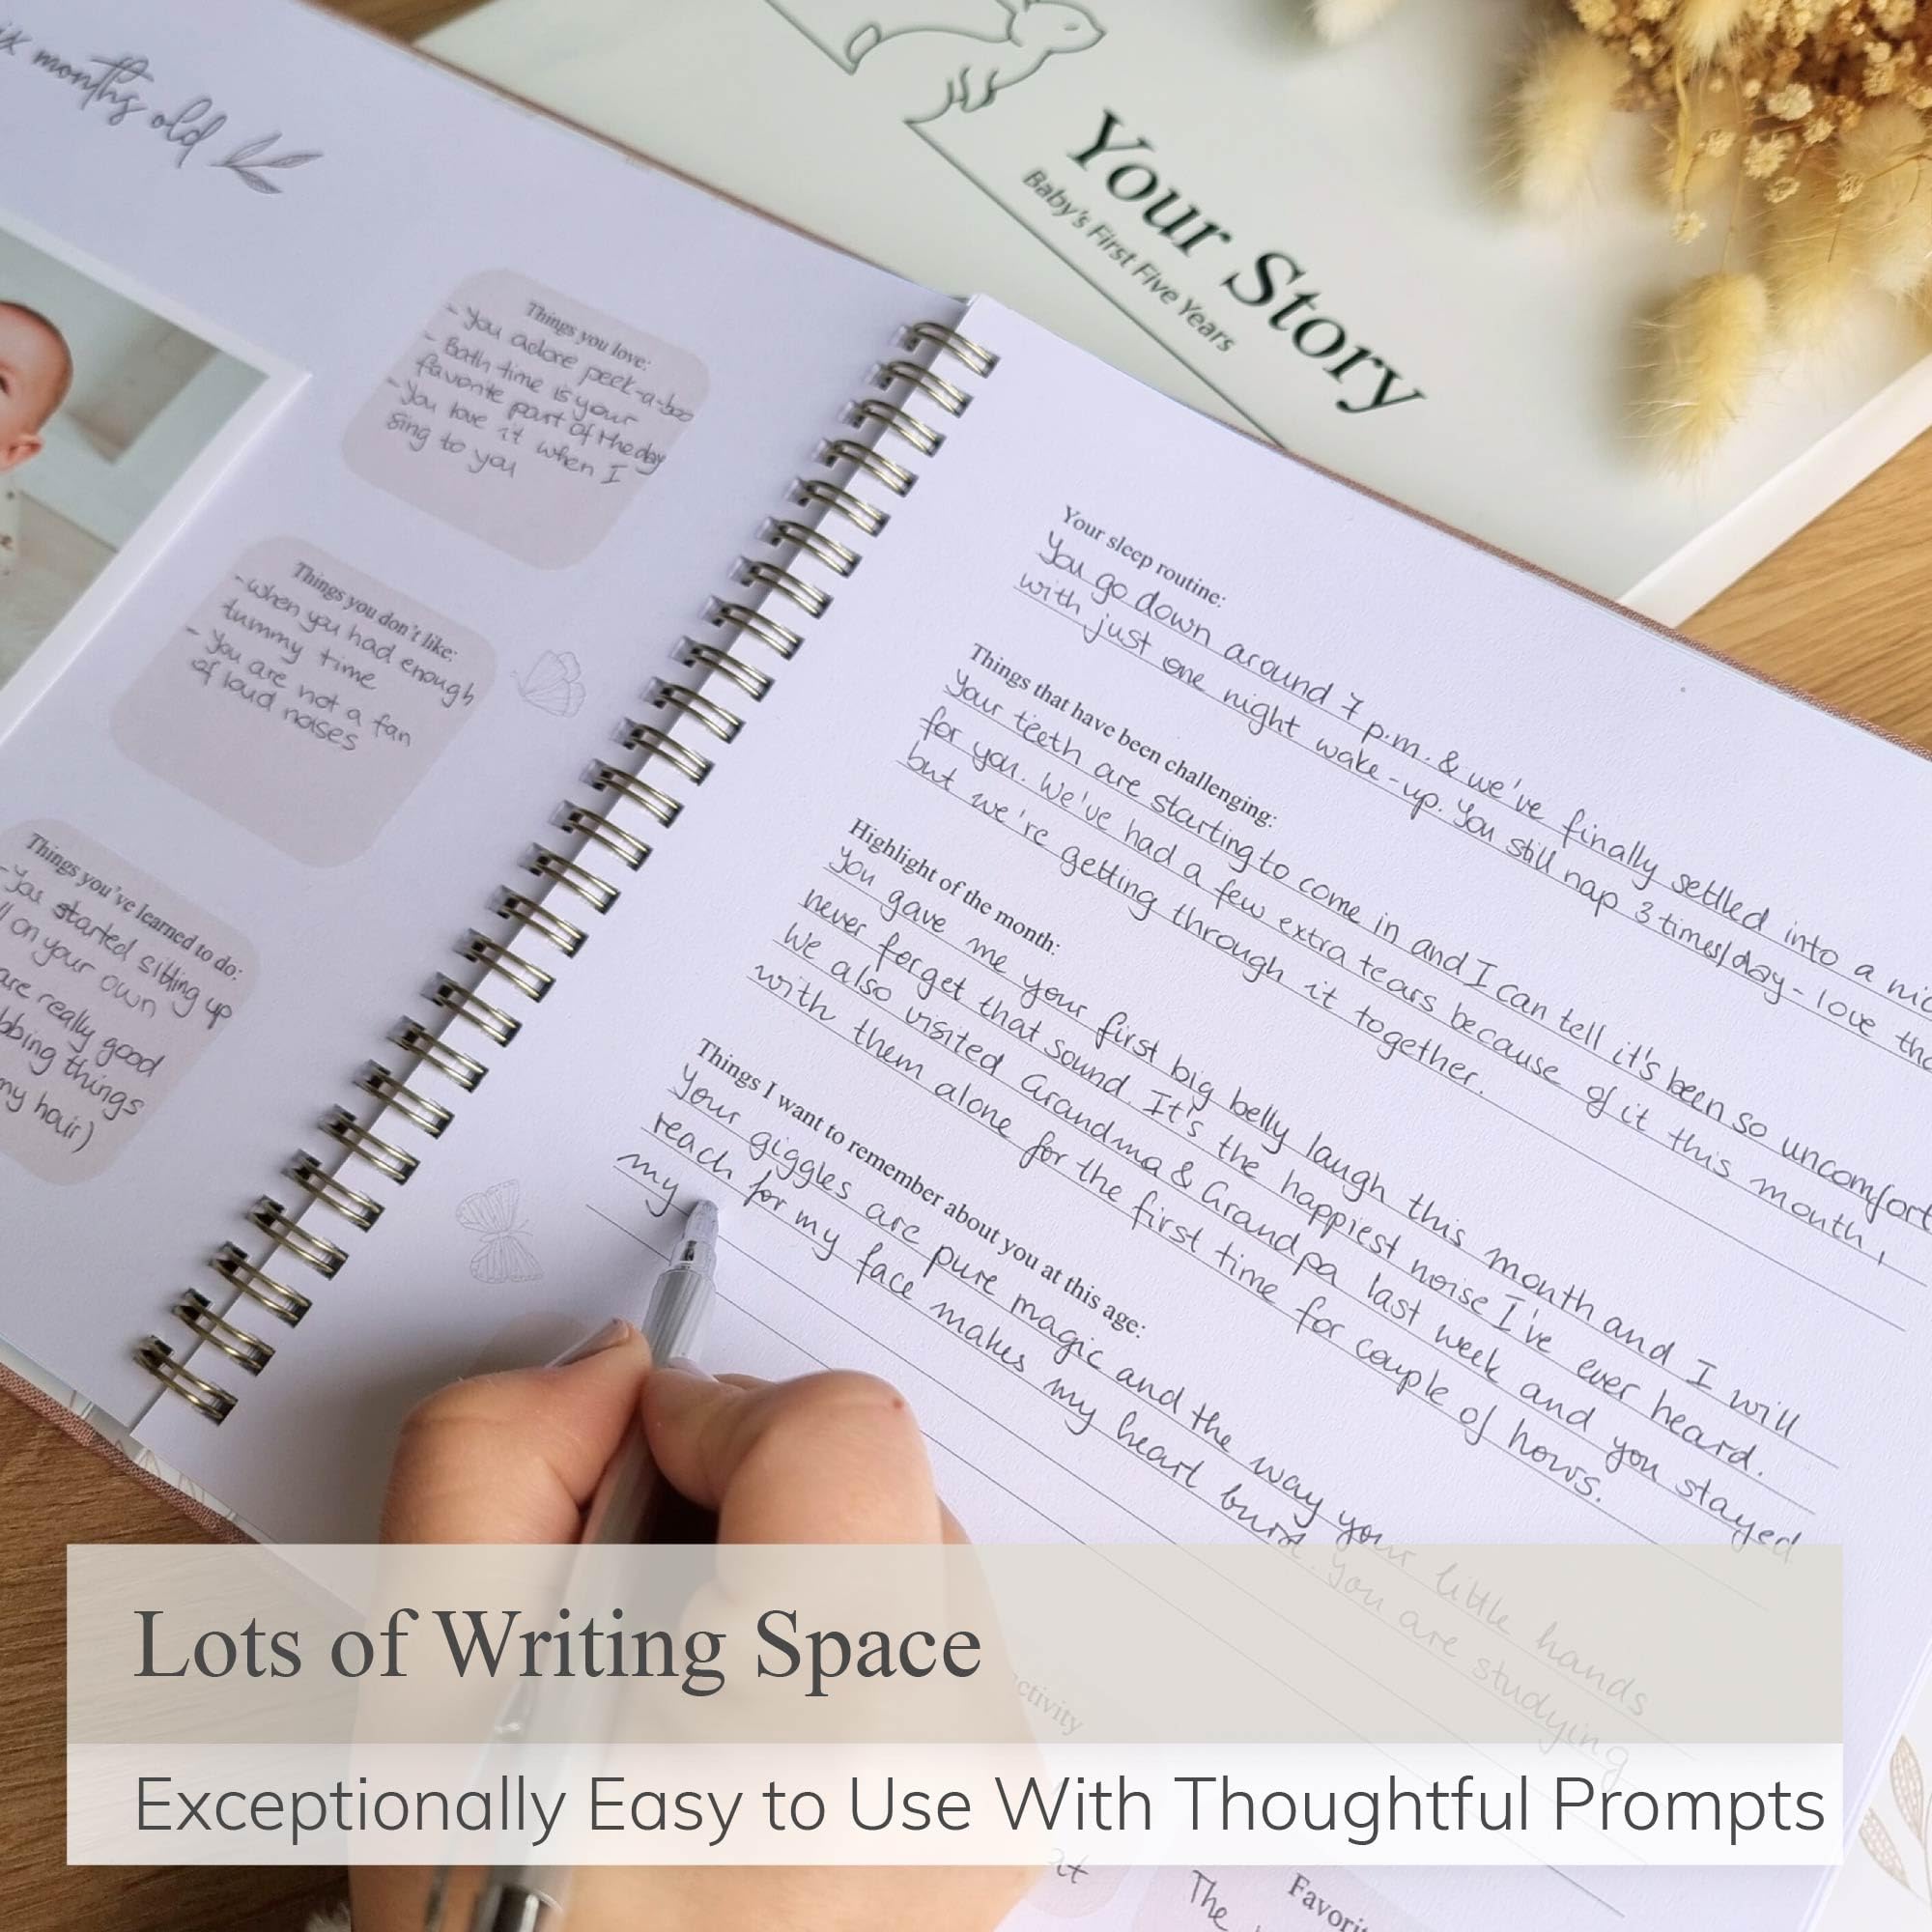 Your Story
Baby's First Five Years
months old
Things you love:
- You adore peek-a-boo
- Bath time is your
favorite part of the day
- You love it when I
sing to you
Things you don't like:
- when you had enough
tummy time
- You are not a fan
of loud noises
Things you've learned to do:
- You started sitting up
on your own
are really good
things
my hair)
Your sleep routine:
You go down around 7 p.m. & we've finally settled into a
with just one night wake-up. You still nap 3 times/day - love
Things that have been challenging:
Your teeth are starting to come in and I can tell it's been so
for you. We've had a few extra tears because of it this month,
but we're getting through it together.
Highlight of the month:
You gave me your first big belly laugh this month and I will
never forget that sound. It's the happiest noise I've ever heard.
We also visited Grandma & Grandpa last week and you stayed
with them alone for the first time for couple of hours.
Things I want to remember about you at this age:
Your giggles are pure magic and the way your little hands
reach for my face makes my heart burst. You are studying
my
Lots of Writing Space
Exceptionally Easy to Use With Thoughtful Prompts
The